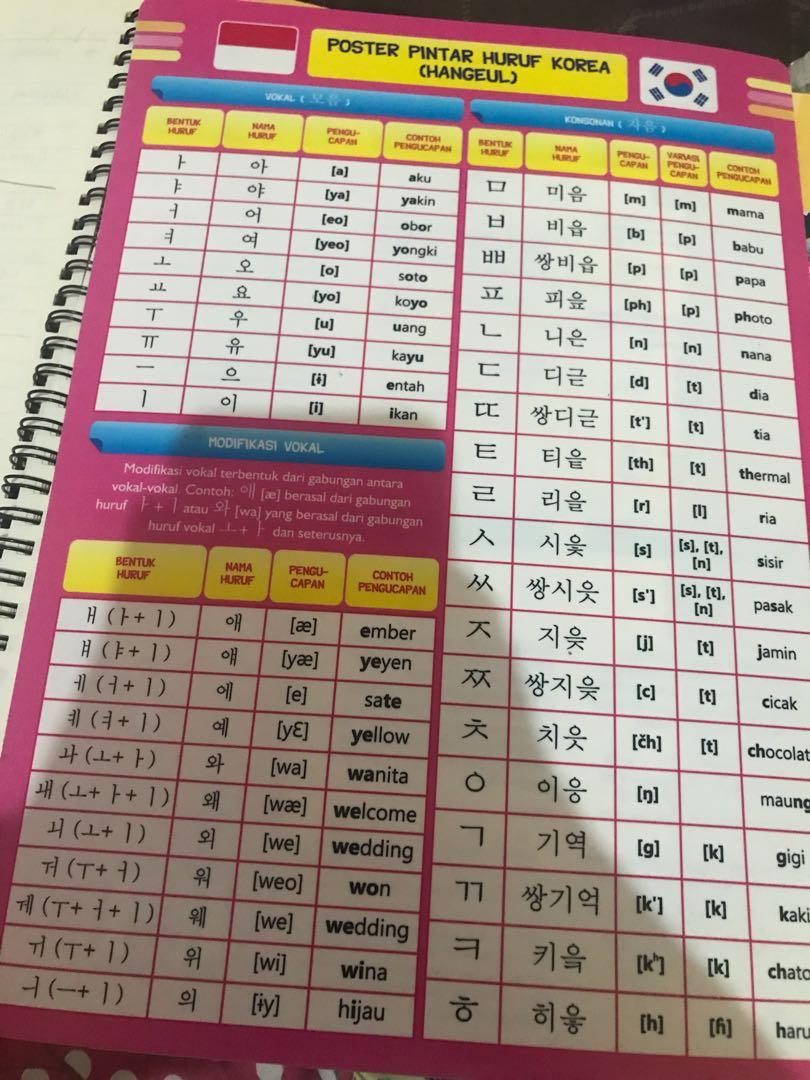 POSTER PINTAR HURUF KOREA
(HANGEUL)
VOKAL ( 모음 )
BENTUK HURUF NAMA HURUF PENGU-CAPAN CONTOH PENGUCAPAN
ㅏ 아 [a] aku
ㅑ 야 [ya] yakin
ㅓ 어 [eo] obor
ㅕ 여 [yeo] yongki
ㅗ 오 [o] soto
ㅛ 요 [yo] koyo
ㅜ 우 [u] uang
ㅠ 유 [yu] kayu
ㅡ 으 [ɨ] entah
ㅣ 이 [i] ikan
MODIFIKASI VOKAL
Modifikasi vokal terbentuk dari gabungan antara
vokal-vokal. Contoh: 애 [æ] berasal dari gabungan
huruf ㅏ + ㅣ atau 와 [wa] yang berasal dari gabungan
huruf vokal ㅗ + ㅏ dan seterusnya.
BENTUK HURUF NAMA HURUF PENGU-CAPAN CONTOH PENGUCAPAN
ㅐ (ㅏ+ ㅣ) 애 [æ] ember
ㅒ (ㅑ+ ㅣ) 얘 [yæ] yeyen
ㅔ (ㅓ+ ㅣ) 에 [e] sate
ㅖ (ㅕ+ ㅣ) 예 [yƐ] yellow
ㅘ (ㅗ+ ㅏ) 와 [wa] wanita
ㅙ (ㅗ+ ㅏ + ㅣ) 왜 [wæ] welcome
ㅚ (ㅗ+ ㅣ) 외 [we] wedding
ㅝ (ㅜ+ ㅓ) 워 [weo] won
ㅞ (ㅜ+ ㅓ + ㅣ) 웨 [we] wedding
ㅟ (ㅜ+ ㅣ) 위 [wi] wina
ㅢ (ㅡ+ ㅣ) 의 [ɨy] hijau
KONSONAN ( 자음 )
BENTUK HURUF NAMA HURUF PENGU-CAPAN VARIASI PENGU-CAPAN CONTOH PENGUCAPAN
ㅁ 미음 [m] [m] mama
ㅂ 비읍 [b] [p] babu
ㅃ 쌍비읍 [p] [p] papa
ㅍ 피읖 [ph] [p] photo
ㄴ 니은 [n] [n] nana
ㄷ 디귿 [d] [t] dia
ㄸ 쌍디귿 [t'] [t] tia
ㅌ 티읕 [th] [t] thermal
ㄹ 리을 [r] [l] ria
ㅅ 시읏 [s] [s], [t], [n] sisir
ㅆ 쌍시읏 [s'] [s], [t], [n] pasak
ㅈ 지읒 [j] [t] jamin
ㅉ 쌍지읒 [c] [t] cicak
ㅊ 치읓 [čh] [t] chocolat
ㅇ 이응 [ŋ] maung
ㄱ 기역 [g] [k] gigi
ㄲ 쌍기억 [k'] [k] kaki
ㅋ 키읔 [kʰ] [k] chato
ㅎ 히읗 [h] [ɦ] haru